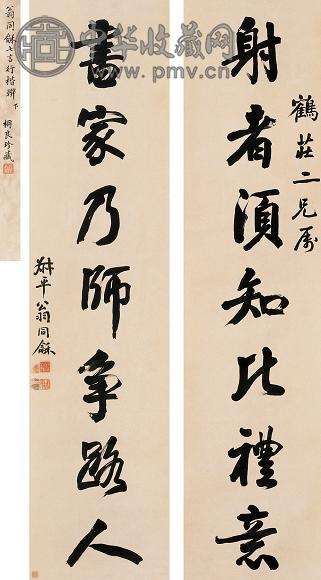 中华收藏网
www.pmv.cn
鶴莊二兄屬
射者須知比禮意
書家乃師争路人
叔平翁同龢
翁同龢七言行楷聯 下
桐良珍藏